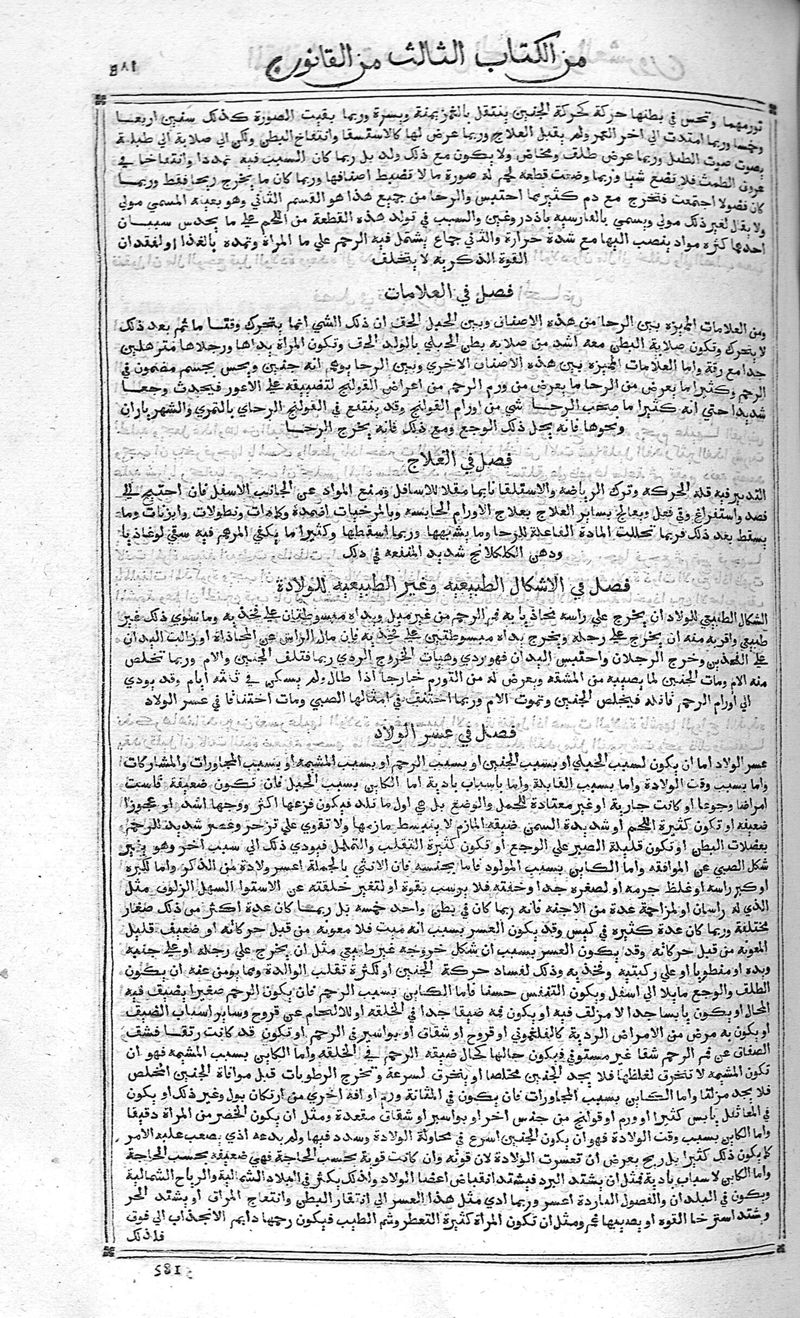 من الكتاب الثالث من القانون
٥٨١
تورمهما وتحس في بطنها حركة كحركة الجنين ينتقل بالغمز يمنة ويسرة وربما بقيت الصورة كذلك سنين اربعا
وخمسا وربما امتدت الى اخر العمر ولم يقبل العلاج وربما عرض لها كالاستسقا وانتفاخ البطن ولكن الى صلابة الى طبلية
يصوت صوت الطبل وربما عرض طلق ومخاض ولا يكون مع ذلك ولد بل ربما كان السبب فيه تمددا وانتفاخا في
عروق الطمث فلا تضع شيا وربما وضعت قطعة لحم له صورة ما لا تضبط اصنافها وربما كان ما يخرج ريحا فقط وربما
كان فضولا اجتمعت فتخرج مع دم كثير مما احتبس والرحا من جميع هذا هو القسم الثاني وهو بعينه المسمى مولي
ولا يقال لغير ذلك مولي ويسمى بالفارسية باذدروغين والسبب في تولد هذه القطعة من اللحم على ما يحدس سببان
احدها كثرة مواد ينصب اليها مع شدة حرارة والثاني جماع يشتمل فيه الرحم على ما المراة وتمده بالغذا ولفقدان
القوة الذكرية لا يتخلف
فصل في العلامات
ومن العلامات المميزه بين الرحا من هذه الاصناف وبين الحبل الحق ان ذلك الشي انما يتحرك وقتا ما ثم بعد ذلك
لا يتحرك وتكون صلابة البطن معه اشد من صلابة بطن الحبلى بالولد الحق وتكون المراة يداها ورجلاها مترهلين
جدا مع رقة واما العلامات المميزه بين هذه الاصناف الاخرى وبين الرحا يوهم انه جنين ويحس بجسم مضموم في
الرحم وكثيرا ما يعرض من الرحا ما يعرض من ورم الرحم من اعراض القولنج لتضييقه على الاعور فيحدث وجعا
شديدا حتى انه كثيرا ما صحب الرحا شي من اورام القولنج وقد ينتفع في القولنج الرحاى بالتمرى والشهرياران
ونحوها فانه يحل ذلك الوجع ومع ذلك فانه يخرج الرحا
فصل في العلاج
التدبير فيه قلة الحركه وترك الرياضة والاستلقا نايما مقلا للاسافل ومنع المواد عن الجانب الاسفل فان احتيج الى
فصد واستفراغ وقي فعل ويعالج بساير العلاج بعلاج الاورام الجايسه وبالمرخيات اضمدة وكمادات ونطولات وابزنات وما
يسقط بعد ذلك فربما تحللت المادة الفاعلة للرحا وما يشبهها وربما اسقطها وكثيرا ما يكفي المرهم فيه سقي لوغاذيا
ودهن الكلكلانج شديد المنفعه في ذلك
فصل في الاشكال الطبيعيه وغير الطبيعيه للولادة
الشكل الطبيعي للولاد ان يخرج على راسه محاذيا به فم الرحم من غير ميل ويداه مبسوطتان على فخذيه وما سوى ذلك غير
طبيعي واقربه منه ان يخرج على رجله ويخرج يداه مبسوطتين على فخذيه فان مال الراس عن المحاذاة او زالت اليدان
على الفخذين وخرج الرجلان واحتبس اليدان فهو ردي وهيات الخروج الردي ربما قتلت الجنين والام وربما تخلص
منه الام ومات الجنين لما يصيبه من المشقه ويعرض له من التورم خارجا اذا طال ولم يسكن في ثلثه ايام وقد يودي
الى اورام الرحم فيخلص الجنين وتموت الام وربما اختنق في امثالها الصبي ومات اختناقا في عسر الولاد
فصل في عسر الولاد
عسر الولاد اما ان يكون لسبب الحبلى او بسبب الجنين او بسبب الرحم او بسبب المشيمه او بسبب المجاورات والمشاركات
واما بسبب وقت الولادة واما بسبب القابلة واما باسباب بادية اما الكاين بسبب الحبل فان تكون ضعيفة قاست
امراضا وجوعا او كانت جارية او غير معتادة للحمل والوضع بل هي اول ما تلد فيكون فزعها اكثر ووجعها اشد او عجوزا
ضعيفه او تكون كثيرة اللحم او شديدة السمن ضيقه المازم لا ينبسط مازمها ولا تقوى على تزحر وعصر شديد للرحم
بعضلات البطن او تكون قليلة الصبر على الوجع او تكون كثيرة التقلب والتململ فيودي ذلك الى سبب اخر وهو تغير
شكل الصبي عن الموافقه واما الكاين بسبب المولود فاما بجنسه فان الانثى بالجملة اعسر ولادة من الذكر واما لكبره
او كبر راسه او غلظ جرمه او لصغره جدا وخفته فلا يرسب بقوة او لتغير خلقته عن الاستوا السهل الزلوق مثل
الذي له راسان او لمزاحمة عدة من الاجنه فانه ربما كان في بطن واحد خمسه بل ربما كان عدة اكثر من ذلك صغار
مختلفة وربما كان عدة كثيره في كيس وقد يكون العسر بسبب انه ميت فلا معونه من قبل حركاته او ضعيف قليل
المعونه من قبل حركاته وقد يكون العسر بسبب ان شكل خروجه غير طبيعي مثل ان يخرج على رجله او على جنبه
ويده او منطويا او على ركبتيه وفخذيه وذلك لفساد حركة الجنين او لكثرة تقلب الوالدة ومما يومن عنه ان يكون
الطلق والوجع مايلا الى اسفل ويكون التنفس حسنا فاما الكاين بسبب الرحم فان يكون الرحم صغيرا يضيق فيه
المجال او يكون يابسا جدا لا مزلق فيه او يكون فمه ضيقا جدا في الخلقه او للالتحام عن قروح وساير اسباب الضيق
او يكون به مرض من الامراض الردية كالفلغموني او قروح او شقاق او بواسير في الرحم او تكون قد كانت رتقا فشق
الصفاق عن فم الرحم شقا غير مستوفي فيكون حالها كحال ضيقه الرحم في الخلقه واما الكاين بسبب المشيمه فهو ان
تكون المشيمه لا تنخرق لغلظها فلا يجد الجنين مخلصا او ينخرق لسرعة وتخرج الرطوبات قبل موافاة الجنين المخلص
فلا يجد مزلقا واما الكاين بسبب المجاورات فان يكون في المثانة ورم او افه اخرى من ارتكان بول وغير ذلك او يكون
في المعا ثفل يابس كثير او ورم او قولنج من جنس اخر او بواسير او شقاق مقعدة ومثل ان يكون الخصر من المراة دقيقا
واما الكاين بسبب وقت الولادة فهو ان يكون الجنين اسرع في محاولة الولادة وسدد فيها ولم يدعه اذى يصعب عليه الامر
كما يكون ذلك كثيرا بل ربح يعرض ان تعسرت الولادة لان قوته وان كانت قوية بحسب الحاجة فهي ضعيفه بحسب الحاجة
واما الكاين لاسباب بادية فمثل ان يشتد البرد فيشتد انقباض اعضا الولاد ولذلك يكثر في البلاد الشمالية والرياح الشمالية
ويكون في البلدان والفصول الباردة اعسر وربما ادى مثل هذا العسر الى انتقار البطن وانتفاج المراق او يشتد الحر
ويشتد استرخا القوه او يصيبها غم ومثل ان تكون المراة كثيرة التعطر وشم الطيب فيكون رحمها دايم الانجذاب الى فوق
فلذلك
185